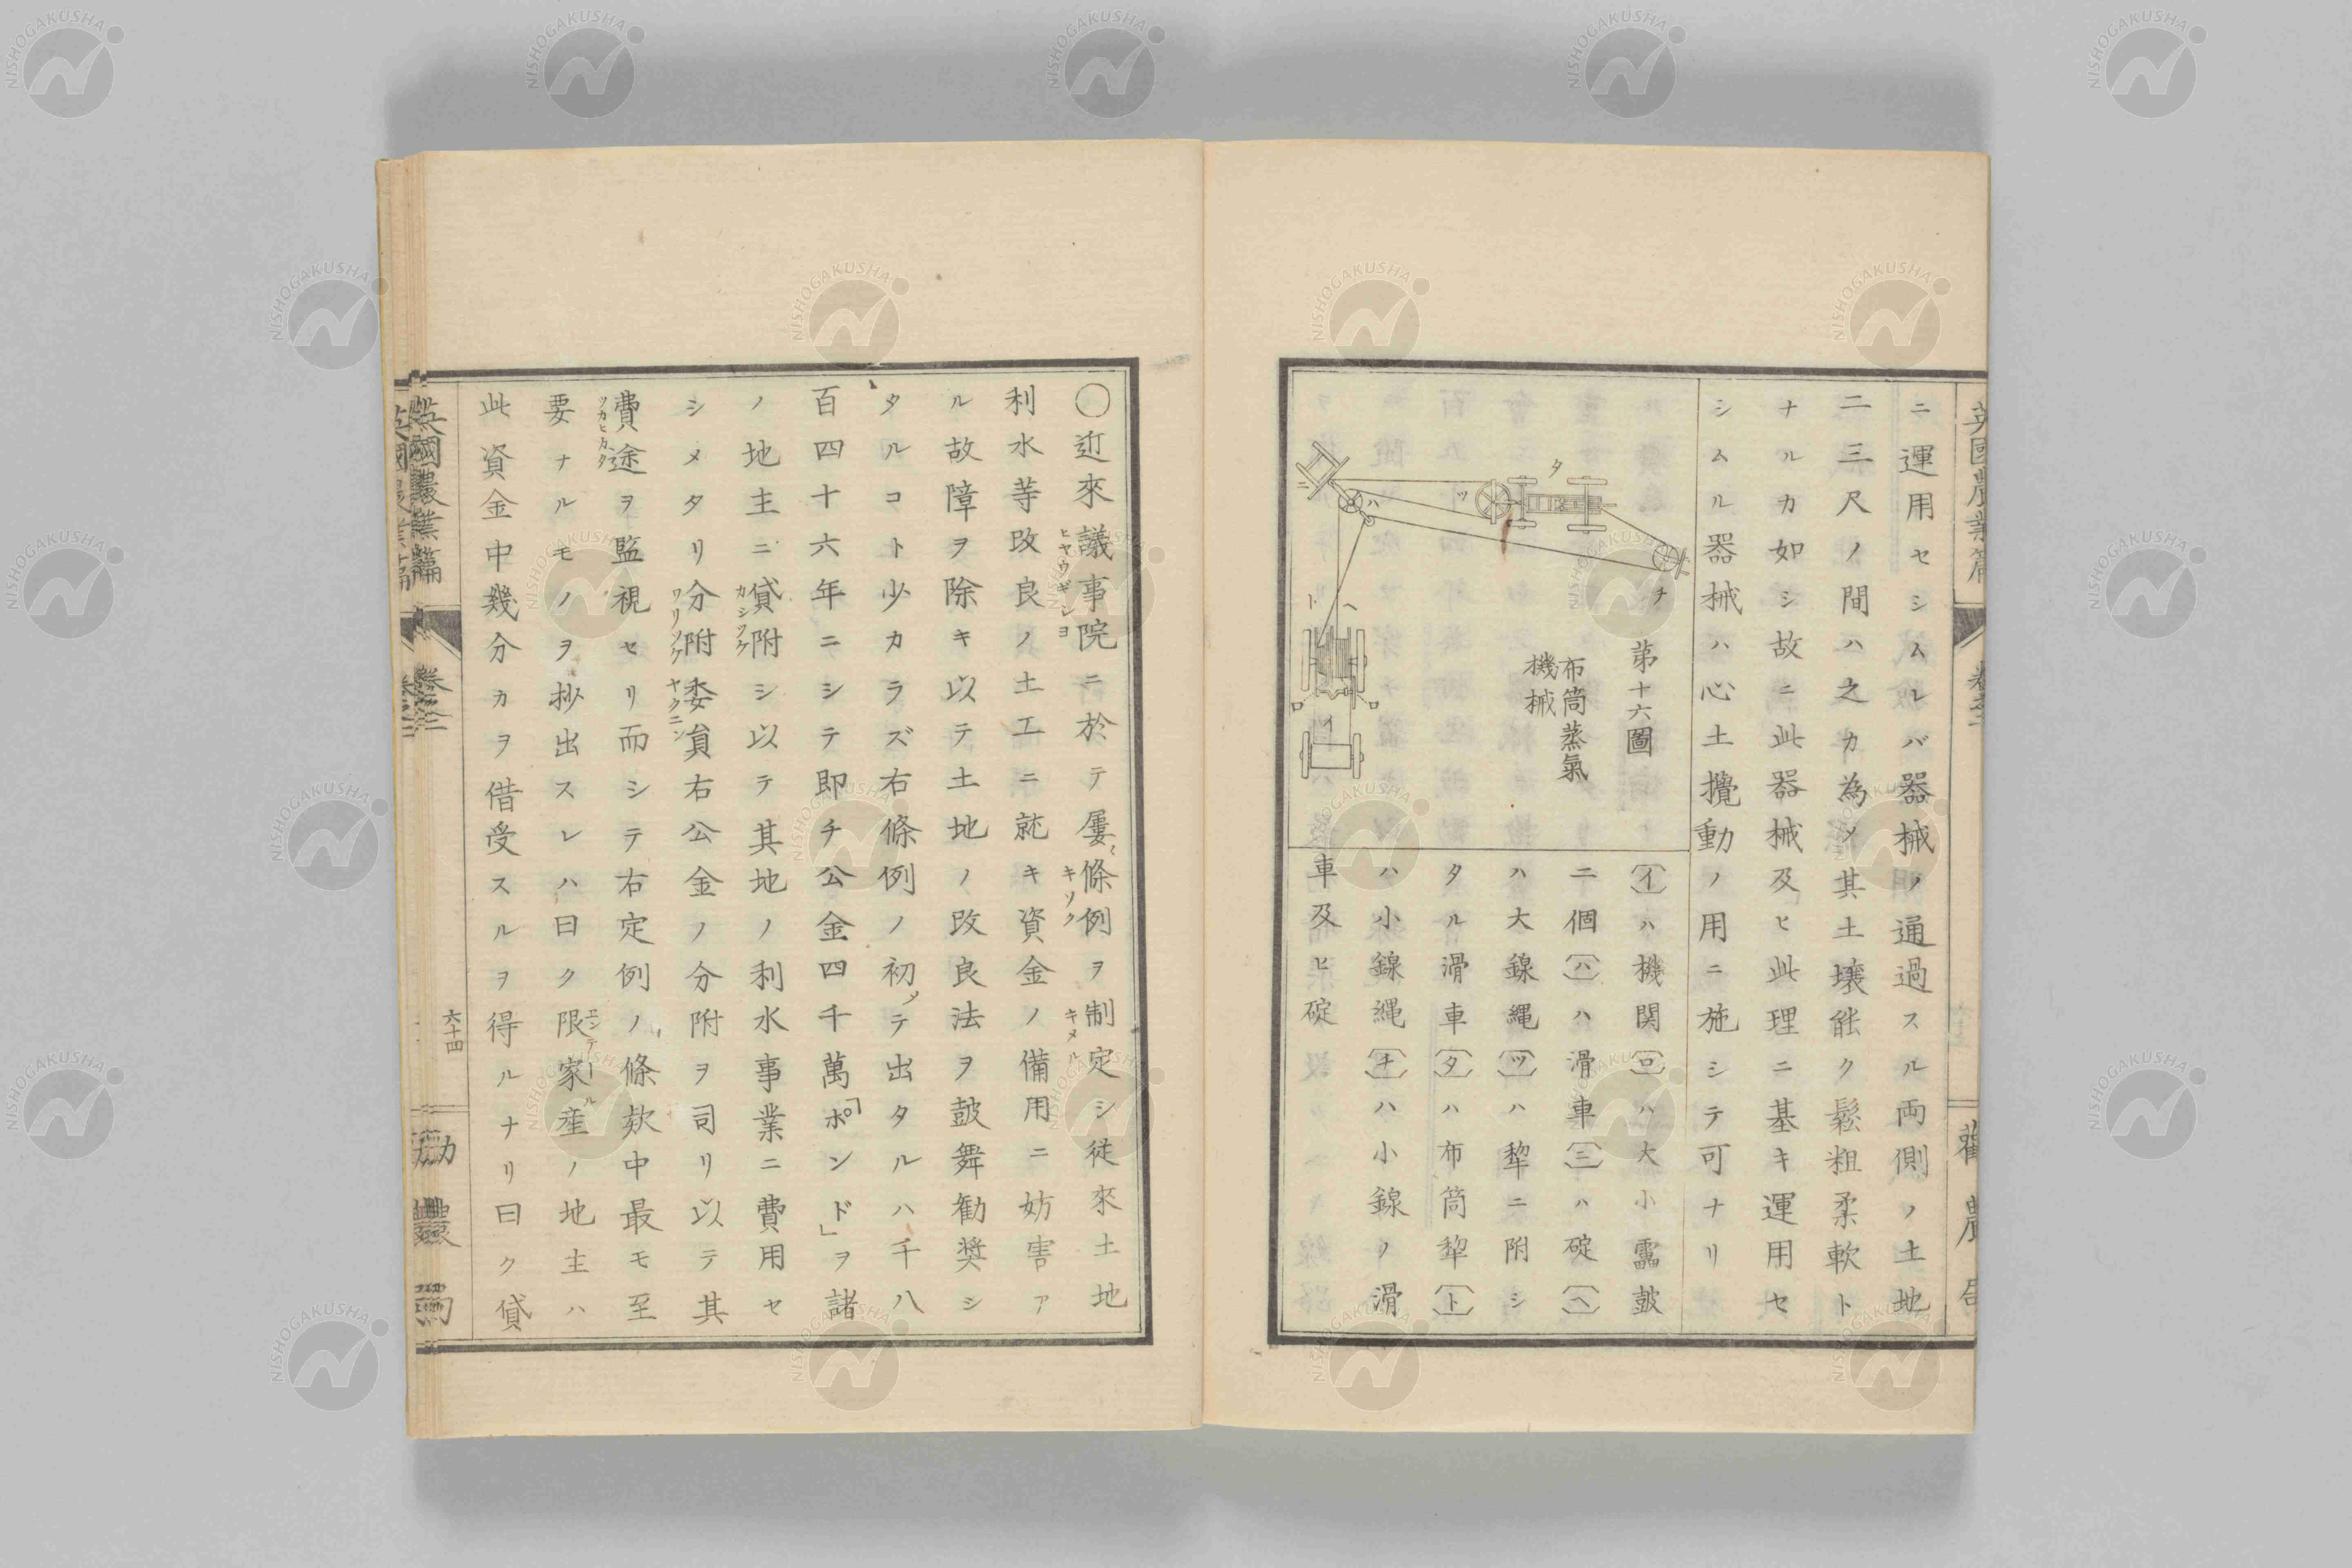 ニ運用セシムレバ器械ノ通過スル両側ノ土地
二三尺ノ間ハ之カ為メ其土壌能ク鬆粗柔軟ト
ナルカ如シ故ニ此器械及ヒ此理ニ基キ運用セ
シムル器械ハ心土攪動ノ用ニ施シテ可ナリ
第十六圖
布筒蒸氣
機械
タ
ツ
ハ
チ
ト
ヘ
ロ
ロ
イ
〔イ〕ハ機関〔ロ〕ハ大小靁鼓
二個〔ハ〕ハ滑車〔三〕ハ碇〔ヘ〕
ハ大線縄〔ツ〕ハ犂ニ附シ
タル滑車〔タ〕ハ布筒犂〔ト〕
ハ小線縄〔チ〕ハ小線ノ滑
車及ヒ碇
〇近來議事院ニ於テ屢〻條例ヲ制定シ従來土地
ヒヤウギシヨ
キソク
キメル
利水等改良ノ土工ニ就キ資金ノ備用ニ妨害ア
ル故障ヲ除キ以テ土地ノ改良法ヲ鼓舞勧奨シ
タルコト少カラズ右條例ノ初メテ出タルハ千八
百四十六年ニシテ即チ公金四千萬「ポンド」ヲ諸
ノ地主ニ貸附シ以テ其地ノ利水事業ニ費用セ
カシツケ
シメタリ分附委員右公金ノ分附ヲ司リ以テ其
ワリツケ
ヤクニン
費途ヲ監視セリ而シテ右定例ノ條欵中最モ至
ツカヒカタ
要ナルモノヲ抄出スレハ曰ク限家産ノ地主ハ
エンテール
此資金中幾分カヲ借受スルヲ得ルナリ曰ク貸
英國農業篇
卷三
六十四
勧農局